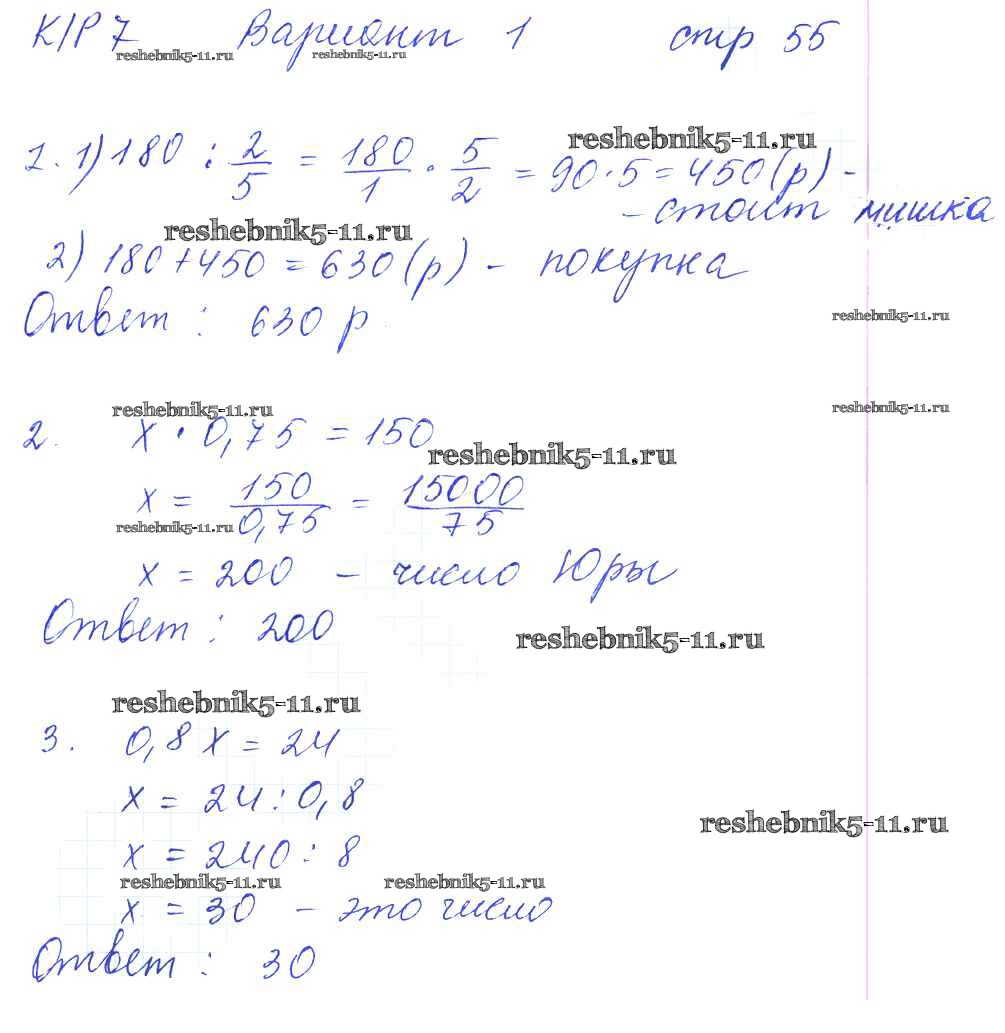 К/Р 7 Вариант 1 стр 55
reshebnik5-11.ru reshebnik5-11.ru
reshebnik5-11.ru
1. 1) 180 : 2/5 = 180/1 · 5/2 = 90·5 = 450 (р) -
- стоит мишка
reshebnik5-11.ru
2) 180+450 = 630 (р) - покупка
Ответ : 630 р.
reshebnik5-11.ru
reshebnik5-11.ru reshebnik5-11.ru
2. x · 0,75 = 150
reshebnik5-11.ru
x = 150/0,75 = 15000/75
reshebnik5-11.ru
x = 200 - число Юры
Ответ : 200
reshebnik5-11.ru
reshebnik5-11.ru
3. 0,8 x = 24
x = 24 : 0,8
reshebnik5-11.ru
x = 240 : 8
reshebnik5-11.ru reshebnik5-11.ru
x = 30 - это число
Ответ : 30